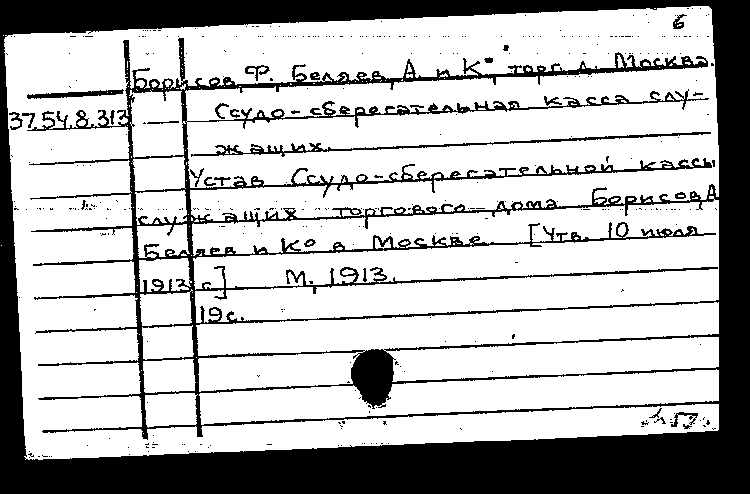 6
Борисов, Ф. Беляев, А и К°, торг. д. Москва.
37.54.8.313 Ссудо-сберегательная касса слу-
жащих.
Устав Ссудо-сберегательной кассы
служащих торгового дома Борисов, А
Беляев и К° в Москве. [Утв. 10 июля
1913 г.] М, 1913.
19с.